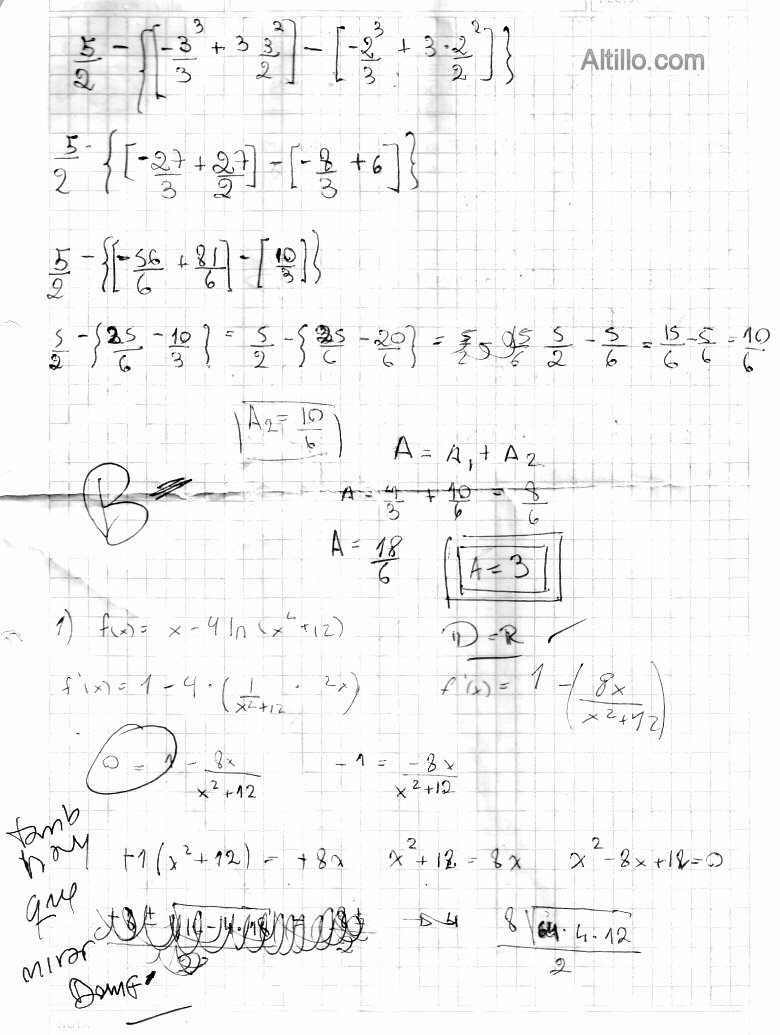 5/2 - {[-3³/3 + 3 3²/2] - [-2³/3 + 3·2²/2]}
Altillo.com
5/2 - {[-27/3 + 27/2] - [-8/3 + 6]}
5/2 - {[-56/6 + 81/6] - [10/3]}
5/2 - {25/6 - 10/3} = 5/2 - {25/6 - 20/6} = 5/2 - 5/6 = 15/6 - 5/6 = 10/6
A2 = 10/6
A = A1 + A2
B
A = 4/3 + 10/6 = 8/6
A = 18/6
A = 3
1) f(x) = x - 4 ln (x² + 12)
D = R
f'(x) = 1 - 4 · (1/x²+12 · 2x)
f'(x) = 1 - (8x/x²+12)
0 = 1 - 8x/x²+12
-1 = -8x/x²+12
tamb
hay
que
mirar
Domf
+1(x² + 12) = +8x
x² + 12 = 8x
x² - 8x + 12 = 0
8 √64·4·12 / 2